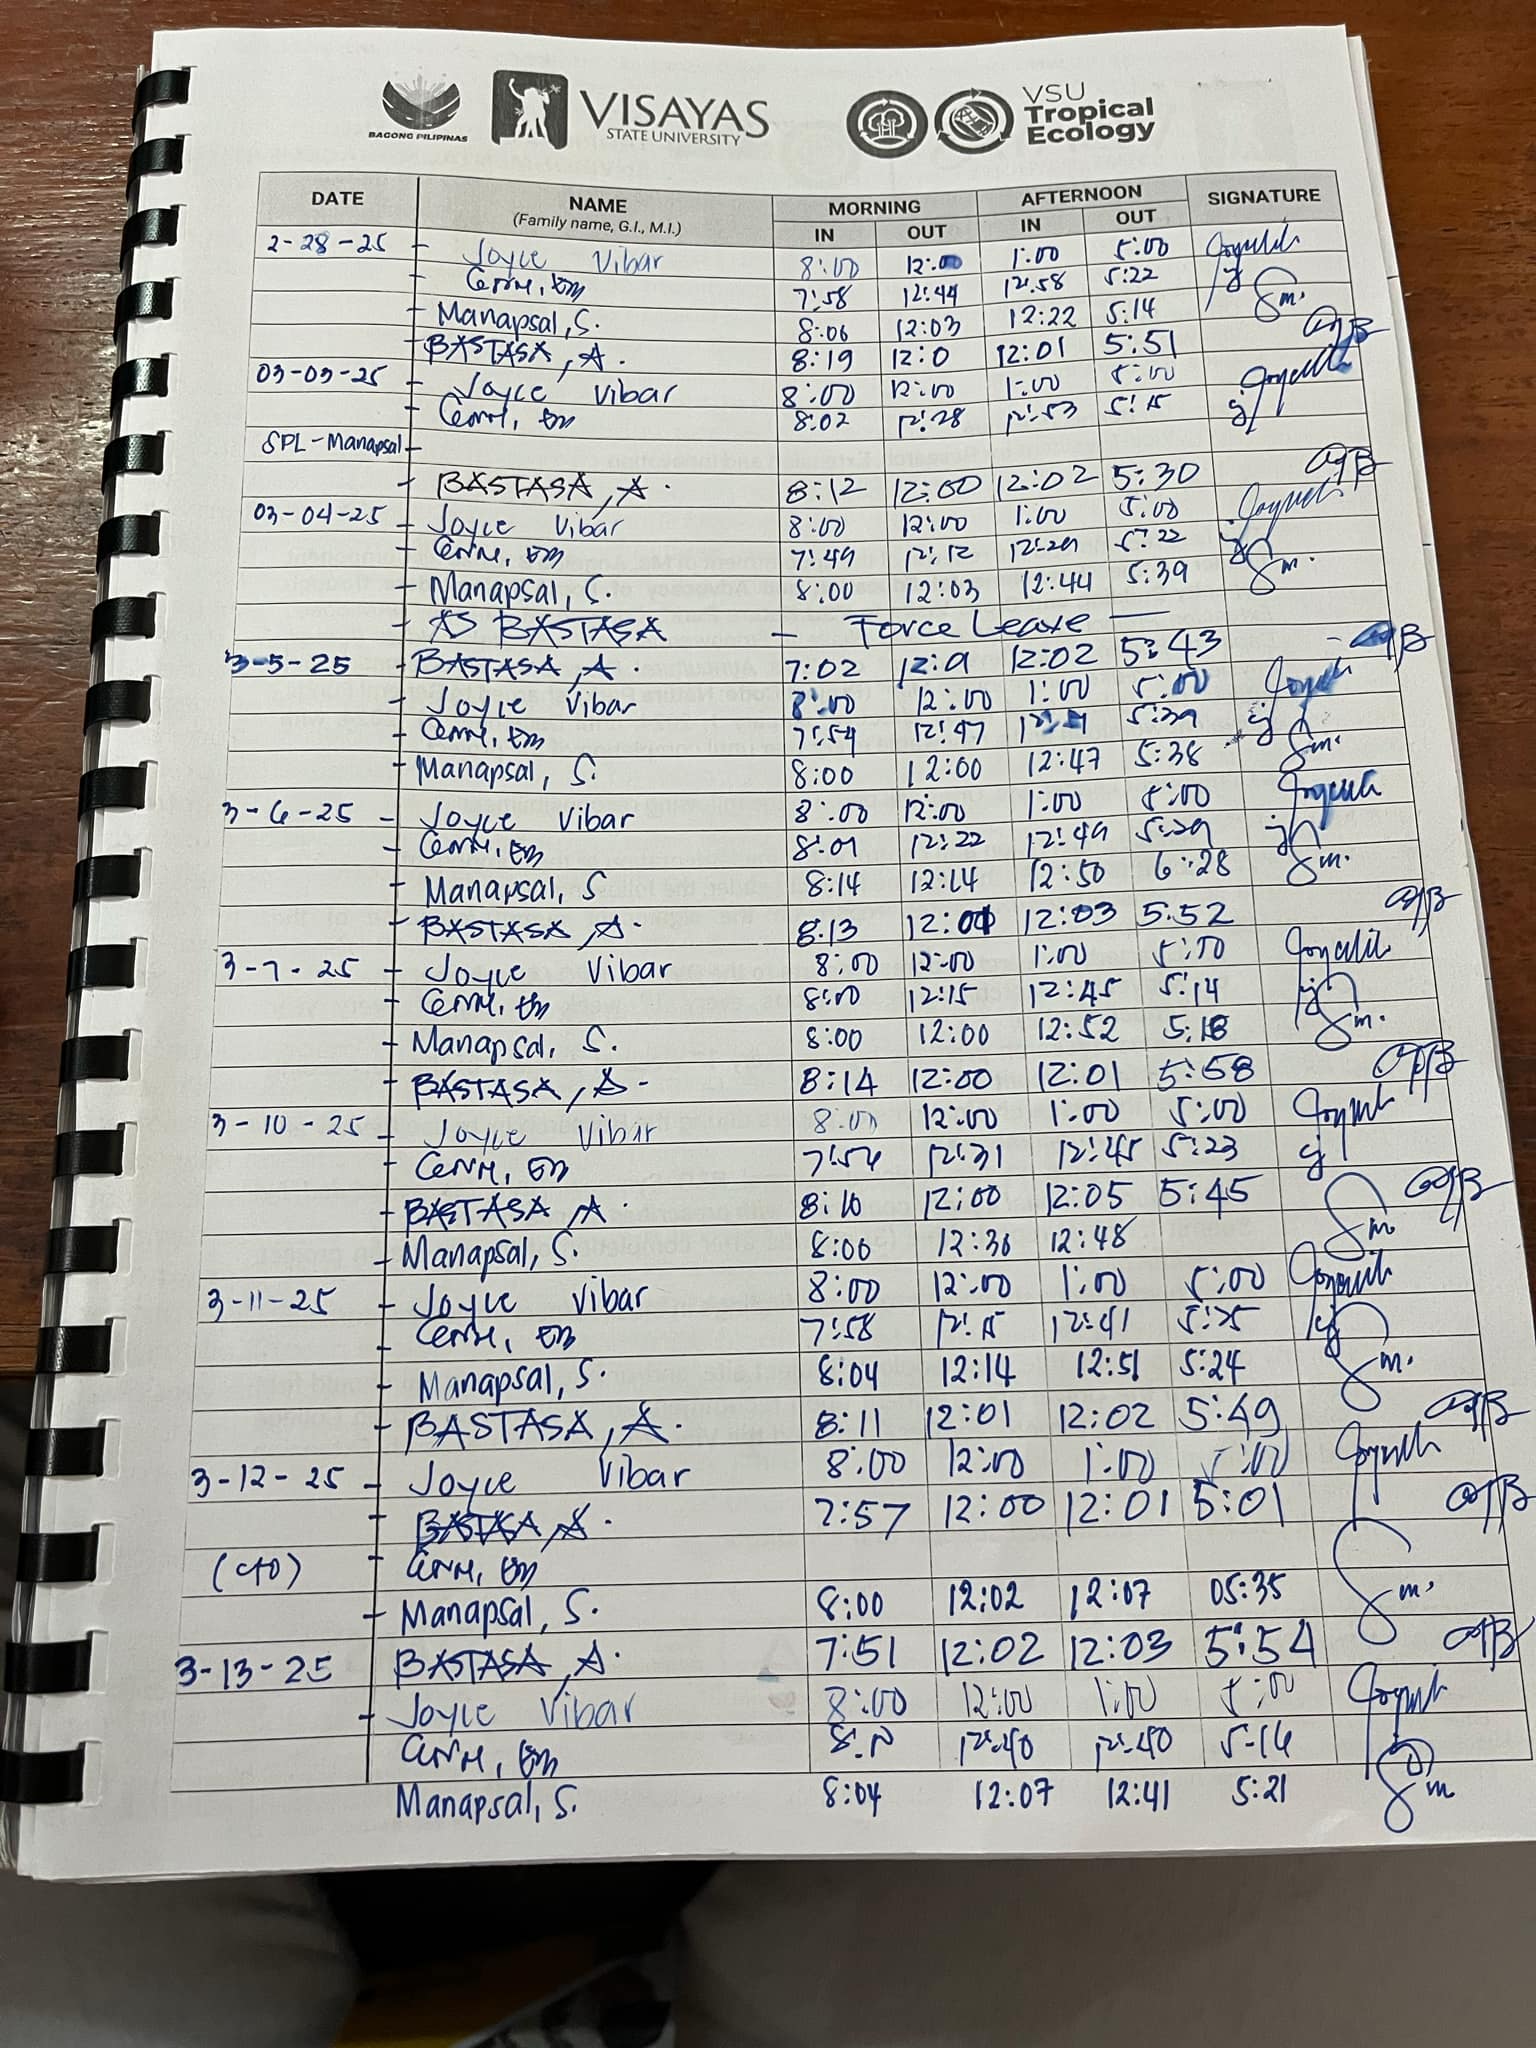 BAGONG PILIPINAS
VISAYAS
STATE UNIVERSITY
VSU
Tropical
Ecology
DATE NAME (Family name, G.I., M.I.) MORNING AFTERNOON SIGNATURE
IN OUT IN OUT
2-28-25 - Joyce Vibar 8:00 12:00 1:00 5:00
7:58 12:44 12:58 5:22
- Manapsal, S. 8:06 12:03 12:22 5:14 Sm.
- BASTASA, A. 8:19 12:0 12:01 5:51
03-03-25 - Joyce Vibar 8:00 12:00 1:00 5:00
8:02 12:28 12:53 5:15
SPL-Manapsal -
- BASTASA, A. 8:12 12:00 12:02 5:30
03-04-25 - Joyce Vibar 8:00 12:00 1:00 5:00
7:49 12:12 12:29 5:22
- Manapsal, S. 8:00 12:03 12:44 5:39 Sm.
- BASTASA - Force Leave -
3-5-25 - BASTASA, A. 7:02 12:01 12:02 5:43
- Joyce Vibar 8:00 12:00 1:00 5:00
7:54 12:47 5:29
- Manapsal, S. 8:00 12:00 12:47 5:38 Sm.
3-6-25 - Joyce Vibar 8:00 12:00 1:00 5:00
8:01 12:22 12:49 5:29
- Manapsal, S 8:14 12:14 12:50 6:28 Sm.
- BASTASA, A. 8:13 12:01 12:03 5:52
3-7-25 - Joyce Vibar 8:00 12:00 1:00 5:00
8:00 12:15 12:45 5:14
- Manapsal, S. 8:00 12:00 12:52 5:18 Sm.
- BASTASA, A. 8:14 12:00 12:01 5:58
3-10-25 - Joyce Vibar 8:00 12:00 1:00 5:00
7:56 12:31 12:45 5:23
- BASTASA, A. 8:10 12:00 12:05 5:45
- Manapsal, S. 8:06 12:36 12:48 Sm
3-11-25 - Joyce Vibar 8:00 12:00 1:00 5:00
7:58 12:15 12:41 5:25
- Manapsal, S. 8:04 12:14 12:51 5:24 Sm.
- BASTASA, A. 8:11 12:01 12:02 5:49
3-12-25 - Joyce Vibar 8:00 12:00 1:00 5:00
- BASTASA, A. 7:57 12:00 12:01 5:01
(CTO) -
- Manapsal, S. 8:00 12:02 12:07 05:35 Sm.
3-13-25 - BASTASA, A. 7:51 12:02 12:03 5:54
- Joyce Vibar 8:00 12:00 1:00 5:00
12:40 12:40 5-16
Manapsal, S. 8:04 12:07 12:41 5:21 Sm